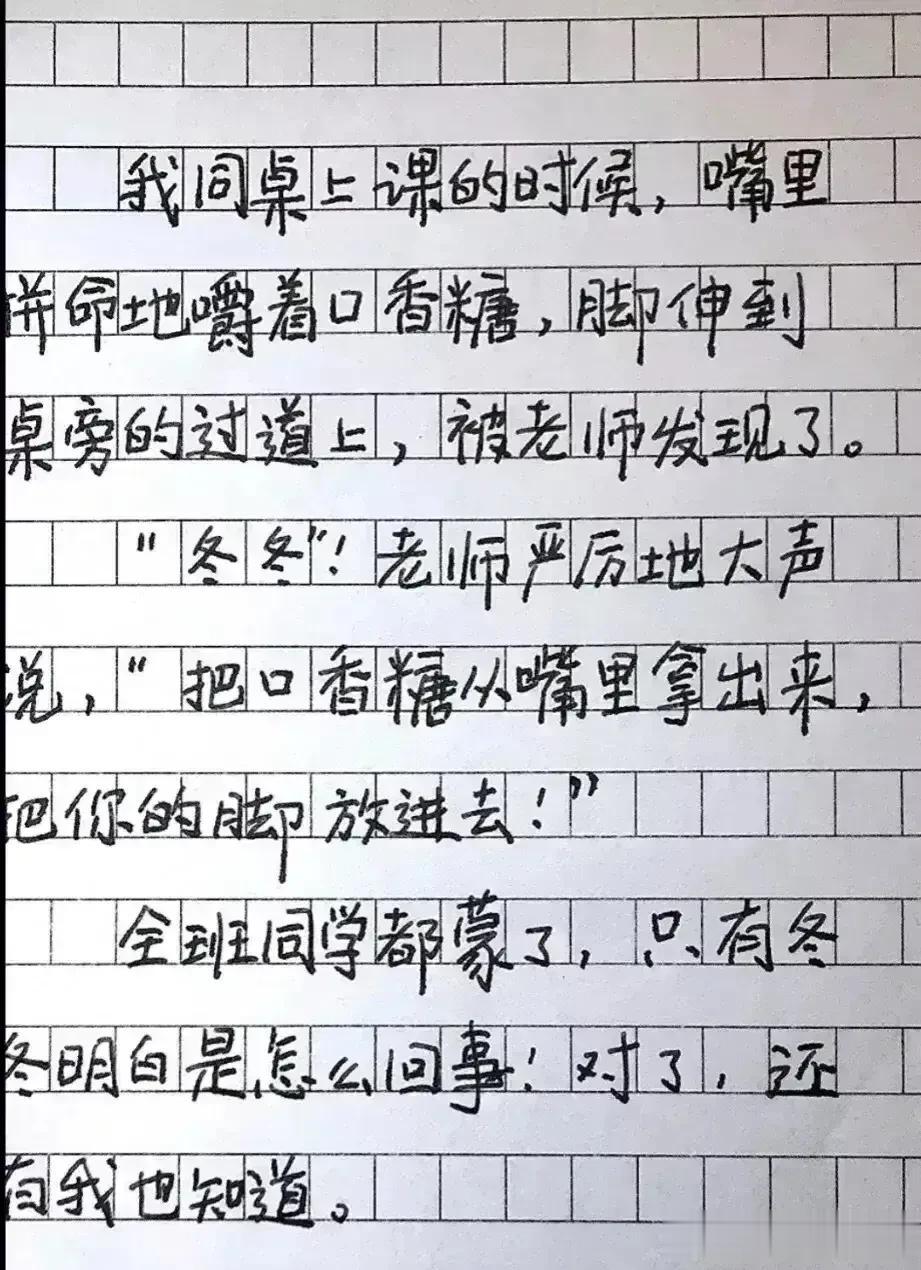 我同桌上课的时候，嘴里
拼命地嚼着口香糖，脚伸到
桌旁的过道上，被老师发现了。
“冬冬”！老师严厉地大声
说，“把口香糖从嘴里拿出来，
把你的脚放进去！”
全班同学都蒙了，只有冬
冬明白是怎么回事！对了，还
有我也知道。